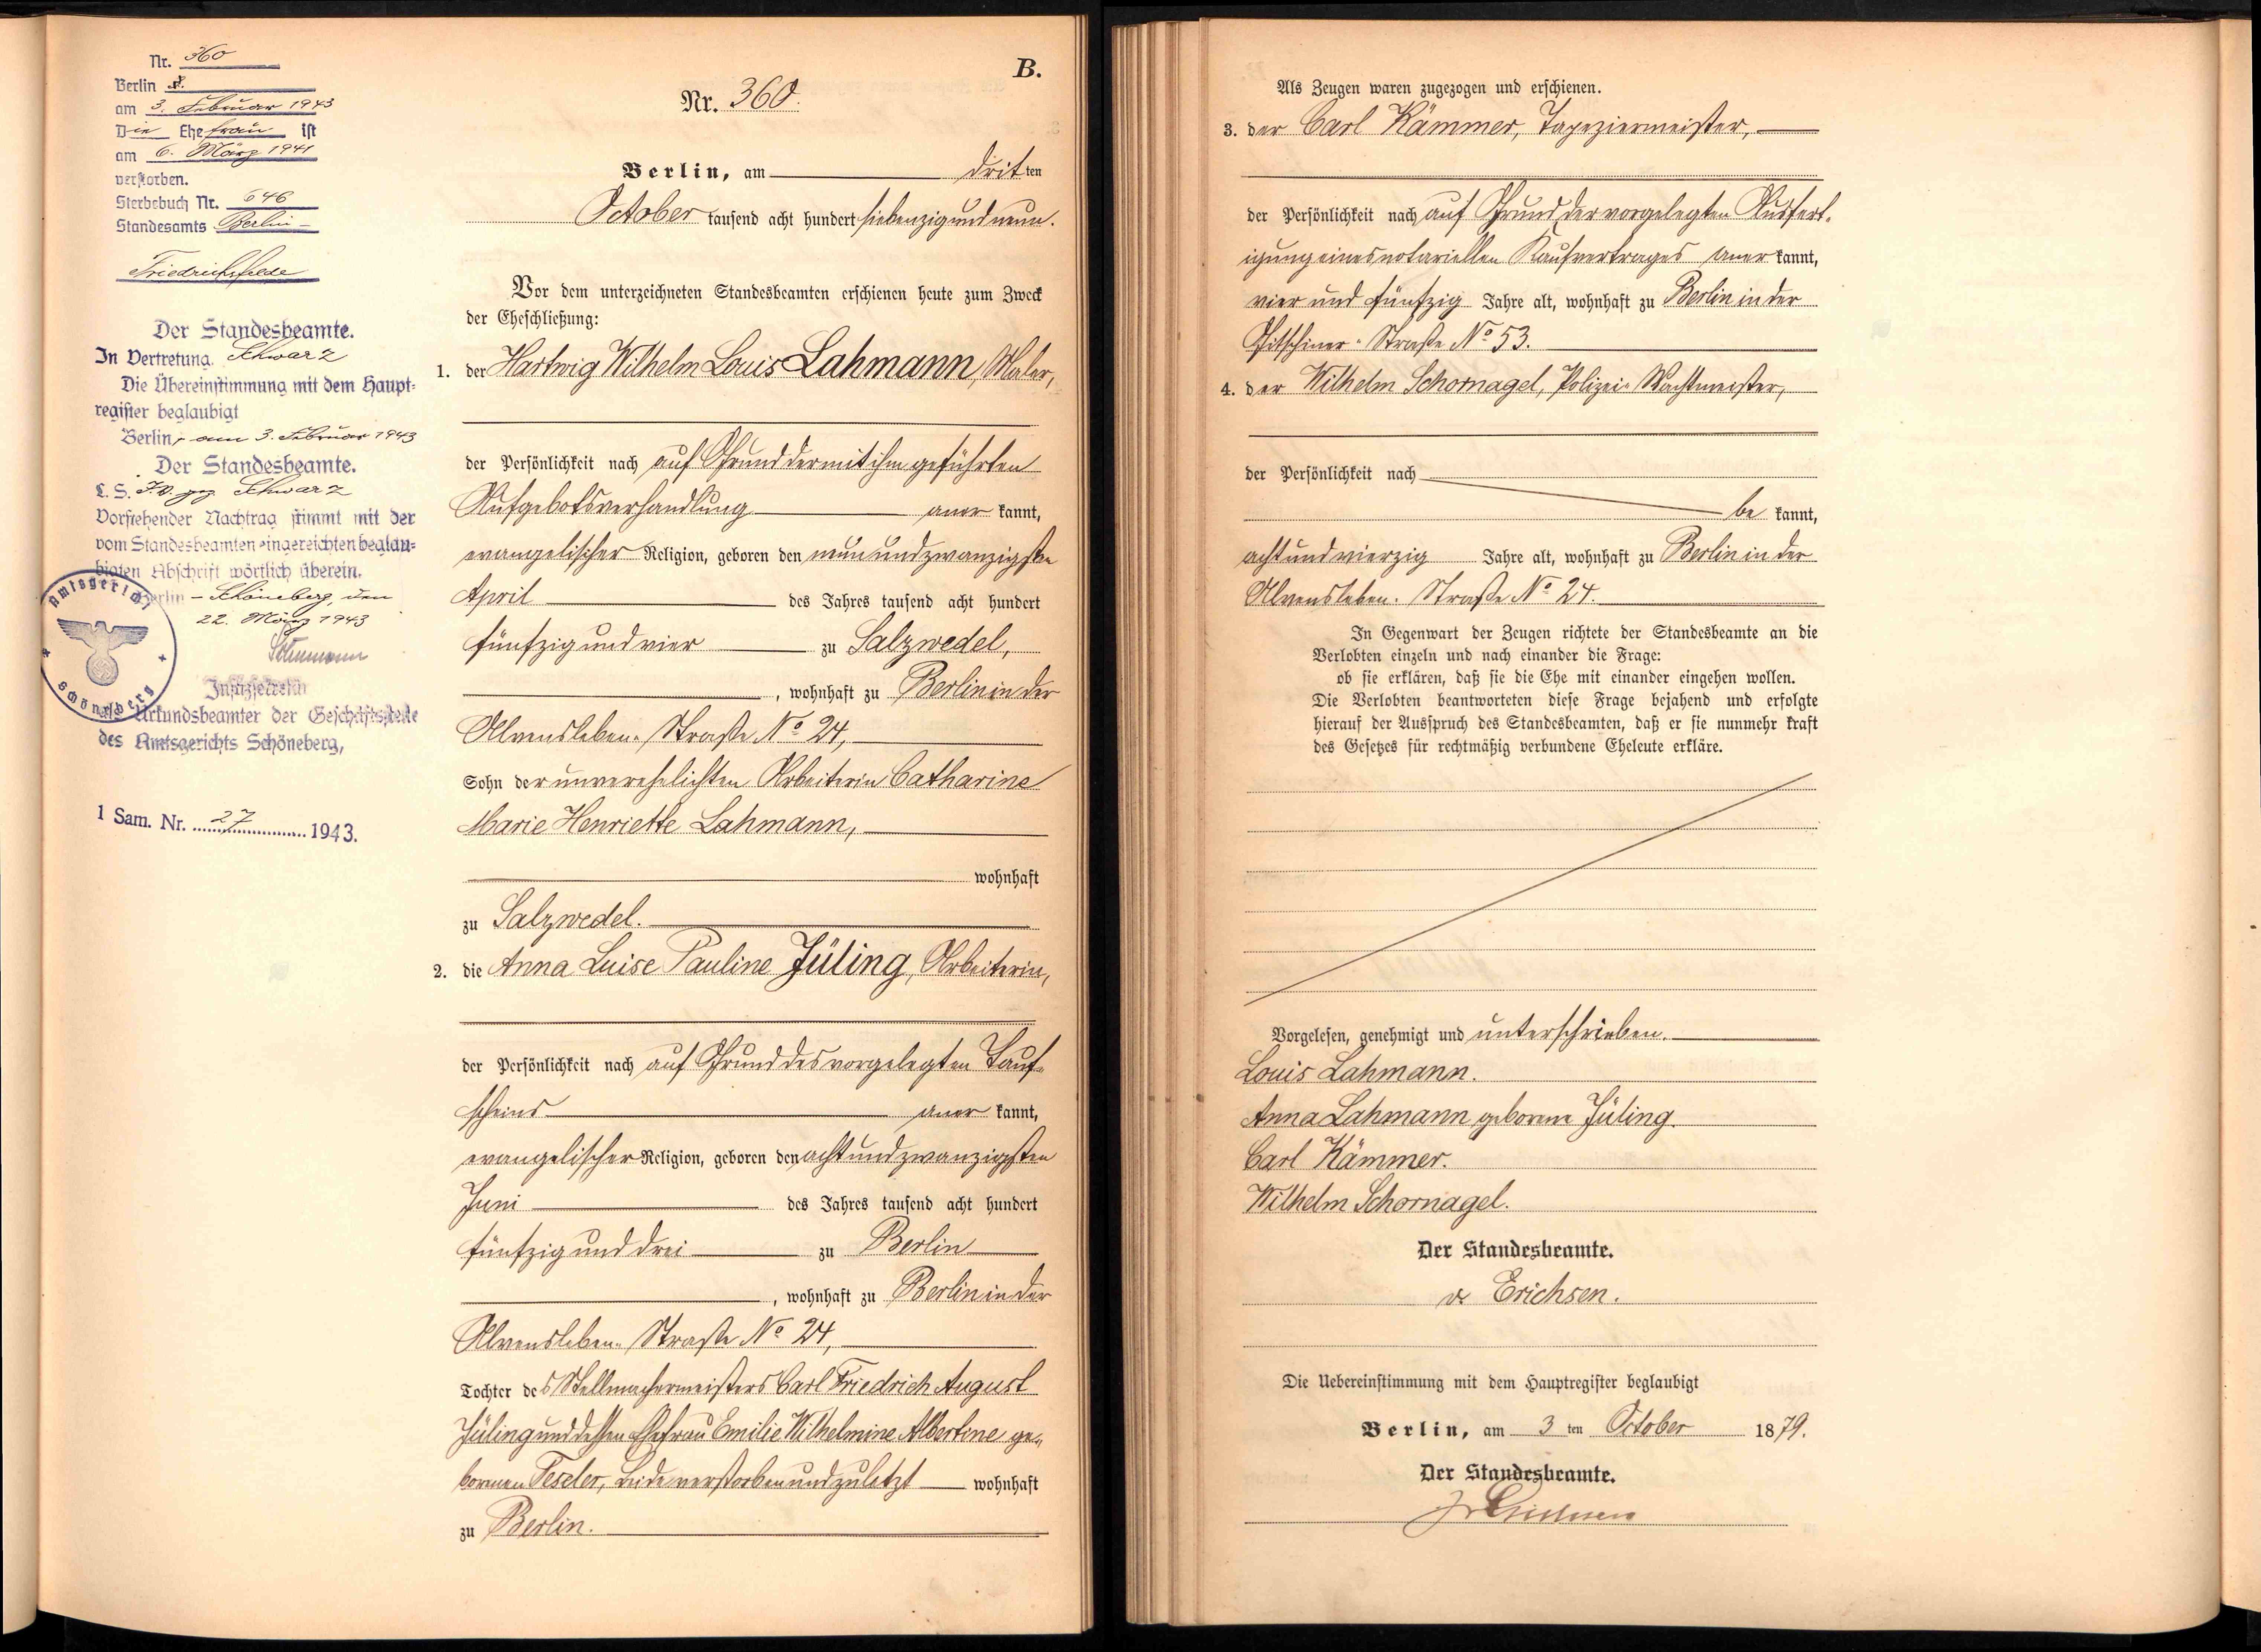 Nr. 360
Berlin
am 3. Februar 1943
Die Ehefrau ist
am 6. März 1941
verstorben.
Sterbebuch Nr. 646
Standesamts Berlin -
Friedrichsfelde
Der Standesbeamte.
In Vertretung. Schwarz
Die Übereinstimmung mit dem Haupt=
register beglaubigt
Berlin, am 3. Februar 1943
Der Standesbeamte.
L. S. I.V. gez. Schwarz
Vorstehender Nachtrag stimmt mit der
vom Standesbeamten eingereichten beglau=
bigten Abschrift wörtlich überein.
Berlin - Schöneberg, den
22. März 1943
Justizsekretär
als Urkundsbeamter der Geschäftsstelle
des Amtsgerichts Schöneberg,
Amtsgericht Schöneberg
1 Sam. Nr. 27 1943.
B.
Nr. 360.
Berlin, am dritten
October tausend acht hundert siebenzig und neun.
Vor dem unterzeichneten Standesbeamten erschienen heute zum Zweck
der Eheschließung:
1. der Hartwig Wilhelm Louis Lahmann, Maler,
der Persönlichkeit nach auf Grund der mit ihm geführten
Aufgebotsverhandlung anerkannt,
evangelischer Religion, geboren den neun und zwanzigsten
April des Jahres tausend acht hundert
fünfzig und vier zu Salzwedel,
, wohnhaft zu Berlin in der
Alvensleben-Straße No 24,
Sohn der unverehelichten Arbeiterin Catharine
Marie Henriette Lahmann,
wohnhaft
zu Salzwedel.
2. die Anna Luise Pauline Jüling, Arbeiterin,
der Persönlichkeit nach auf Grund des vorgelegten Tauf-
scheins anerkannt,
evangelischer Religion, geboren den acht und zwanzigsten
Juni des Jahres tausend acht hundert
fünfzig und drei zu Berlin
, wohnhaft zu Berlin in der
Alvensleben-Straße No 24,
Tochter des Stellmachermeisters Carl Friedrich August
Jüling und dessen Ehefrau Emilie Wilhelmine Albertine ge-
borenen Teseler, beide verstorben und zuletzt wohnhaft
zu Berlin.
Als Zeugen waren zugezogen und erschienen.
3. der Carl Kämmer, Tapeziermeister,
der Persönlichkeit nach auf Grund der vorgelegten Ausfert-
igung eines notariellen Kaufvertrages anerkannt,
vier und fünfzig Jahre alt, wohnhaft zu Berlin in der
Gitschiner-Straße No 53.
4. der Wilhelm Schornagel, Polizei-Wachtmeister,
der Persönlichkeit nach
bekannt,
acht und vierzig Jahre alt, wohnhaft zu Berlin in der
Alvensleben-Straße No 24.
In Gegenwart der Zeugen richtete der Standesbeamte an die
Verlobten einzeln und nach einander die Frage:
ob sie erklären, daß sie die Ehe mit einander eingehen wollen.
Die Verlobten beantworteten diese Frage bejahend und erfolgte
hierauf der Ausspruch des Standesbeamten, daß er sie nunmehr kraft
des Gesetzes für rechtmäßig verbundene Eheleute erkläre.
Vorgelesen, genehmigt und unterschrieben.
Louis Lahmann.
Anna Lahmann geborene Jüling.
Carl Kämmer.
Wilhelm Schornagel.
Der Standesbeamte.
v. Erichsen.
Die Uebereinstimmung mit dem Hauptregister beglaubigt
Berlin, am 3 ten October 1879.
Der Standesbeamte.
v. Erichsen